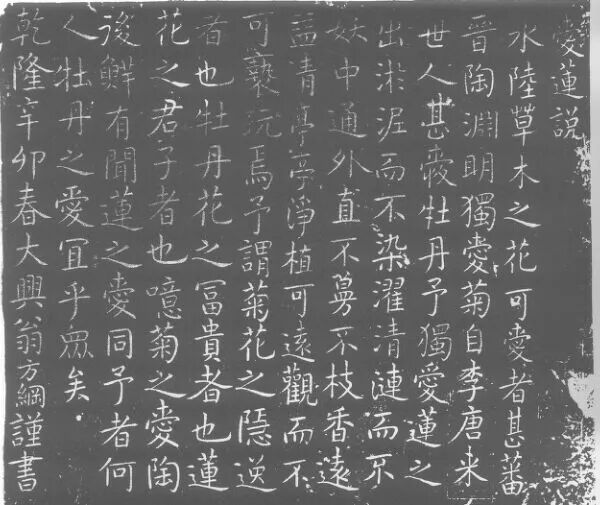 愛蓮説
水陸草木之花可愛者甚蕃
晉陶淵明獨愛菊自李唐来
世人甚愛牡丹予獨愛蓮之
出淤泥而不染濯清漣而不
妖中通外直不蔓不枝香遠
益清亭亭淨植可遠觀而不
可褻玩焉予謂菊花之隱逸
者也牡丹花之冨貴者也蓮
花之君子者也噫菊之愛陶
後鮮有聞蓮之愛同予者何
人牡丹之愛冝乎眾矣
乾隆辛卯春大興翁方綱謹書